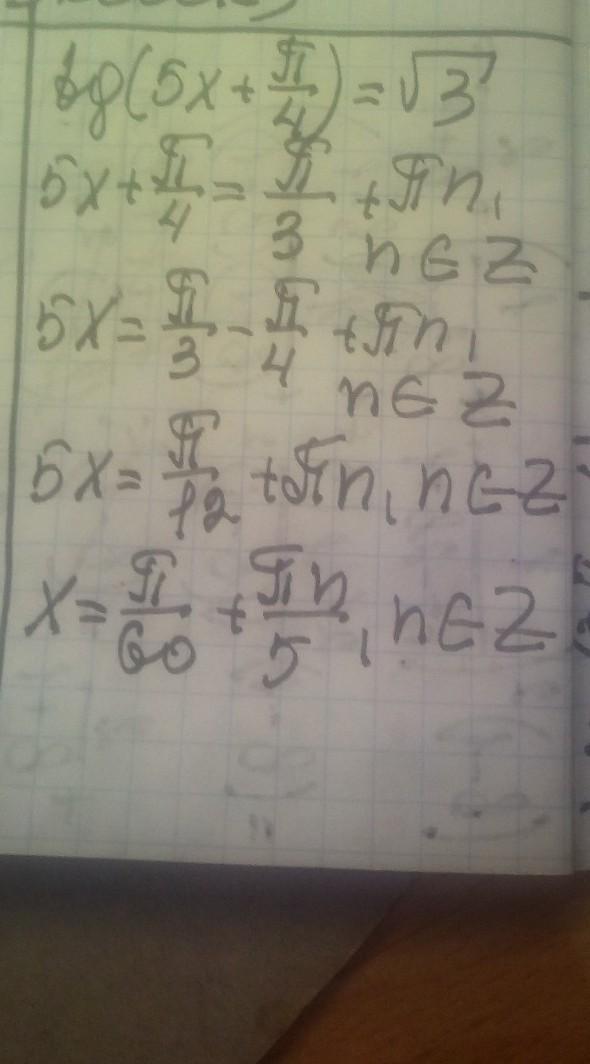 tg(5x + π/4) = √3
5x + π/4 = π/3 + πn,
n ∈ Z
5x = π/3 - π/4 + πn,
n ∈ Z
5x = π/12 + πn, n ∈ Z
x = π/60 + πn/5, n ∈ Z